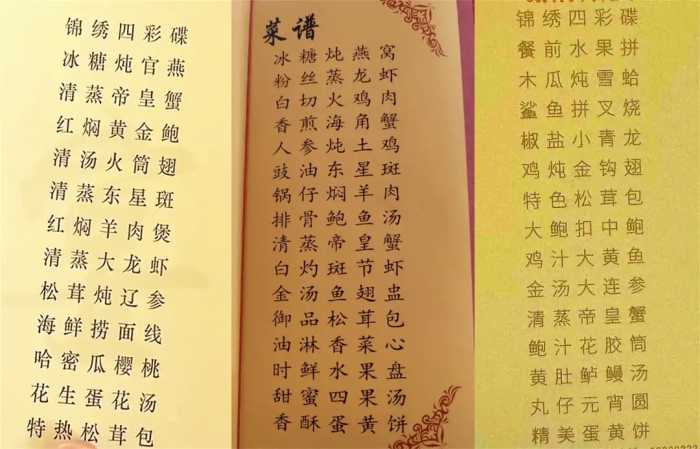 锦绣四彩碟
冰糖炖官燕
清蒸帝皇蟹
红焖黄金鲍
清汤火筒翅
清蒸东星斑
红焖羊肉煲
清蒸大龙虾
松茸炖辽参
海鲜捞面线
哈密瓜樱桃
花生蛋花汤
特热松茸包
菜谱
冰糖炖燕窝
粉丝蒸龙虾
白切火鸡肉
香煎海角蟹
人参炖土鸡
豉油东星斑
锅仔焖羊肉
排骨鲍鱼汤
清蒸帝皇蟹
白灼斑节虾
金汤鱼翅盅
御品松茸包
油淋香菜心
时鲜水果盘
甜蜜四果汤
香酥蛋黄饼
锦绣四彩碟
餐前水果拼
木瓜炖雪蛤
鲨鱼拼叉烧
椒盐小青龙
鸡炖金钩翅
特色松茸包
大鲍扣中鲍
鸡汁大黄鱼
金汤大连参
清蒸帝皇蟹
鲍汁花胶筒
黄肚鲈鳗汤
丸仔元宵圆
精美蛋黄饼